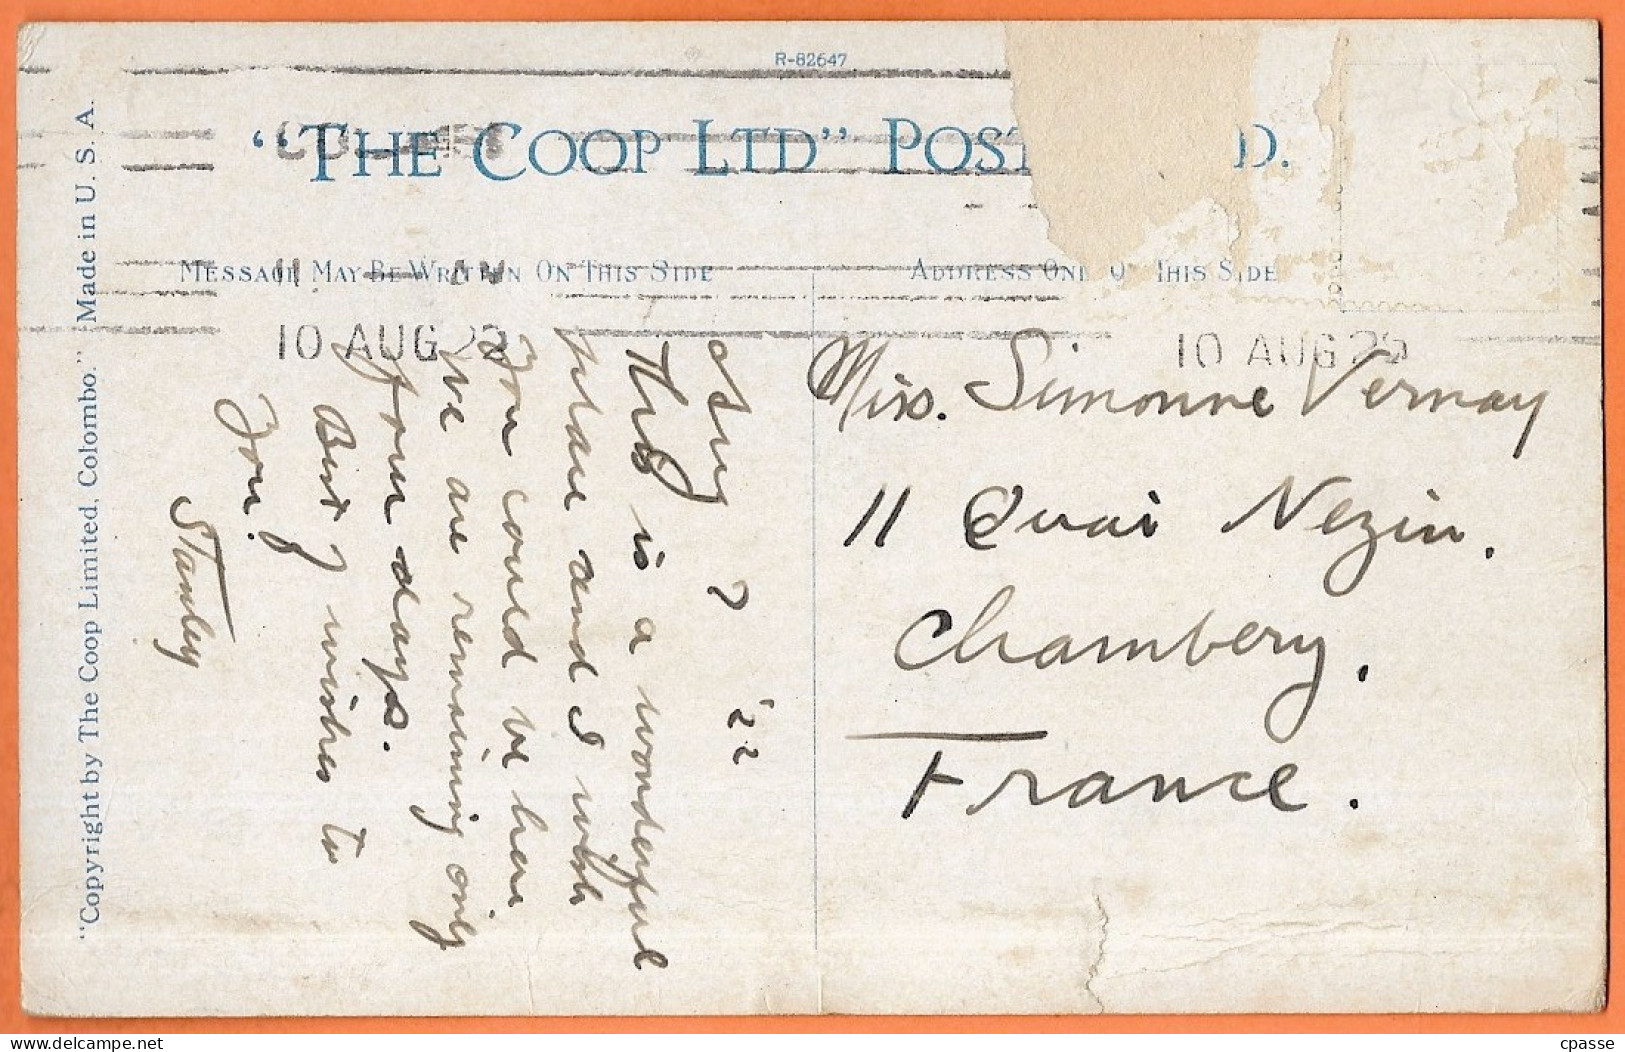 R-82647
"THE COOP LTD" POST D.
MESSAGE MAY BE WRITTEN ON THIS SIDE
ADDRESS ONLY THIS SIDE
11
10 AUG 22
10 AUG 22
"Copyright by The Coop Limited, Colombo." Made in U. S. A.
Aug 7 '22
This is a wonderful
place and I wish
you could be here.
We are remaining only
four days.
Best of wishes to
you.
Stanley
Miss. Simonne Vernay
11 Quai Nezin.
Chambery.
France.
cpasse